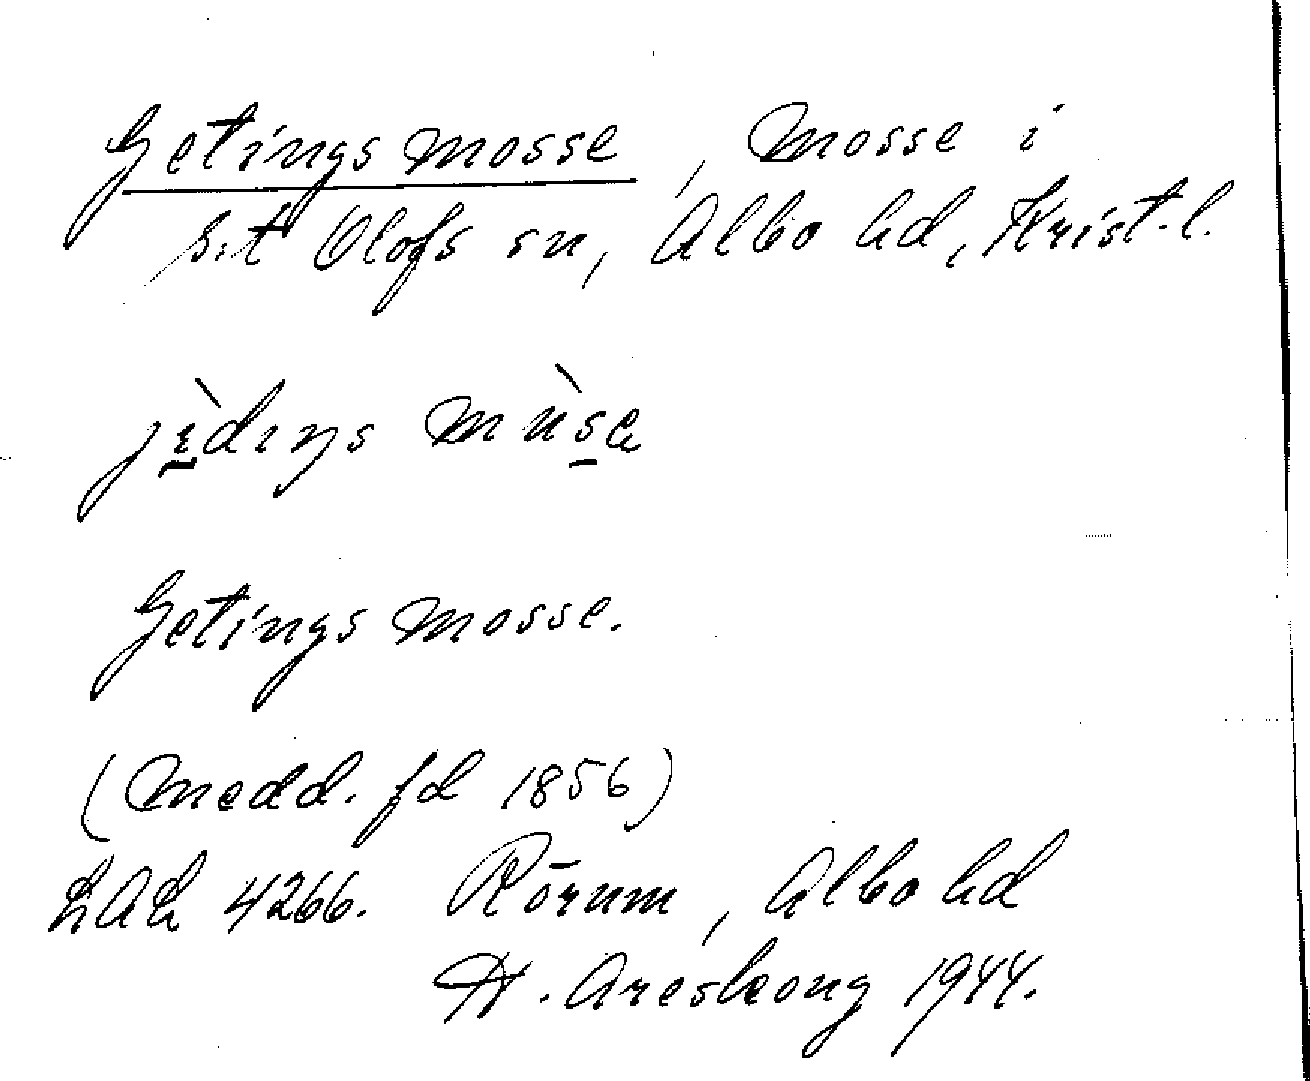 Getingsmosse, Mosse i
S:t Olofs sn, Albo hd, Krist.l.
Getings mosse.
(Medd. fd 1856)
LAL 4266. Rörum, Albo hd
H. Areskoug 1944.